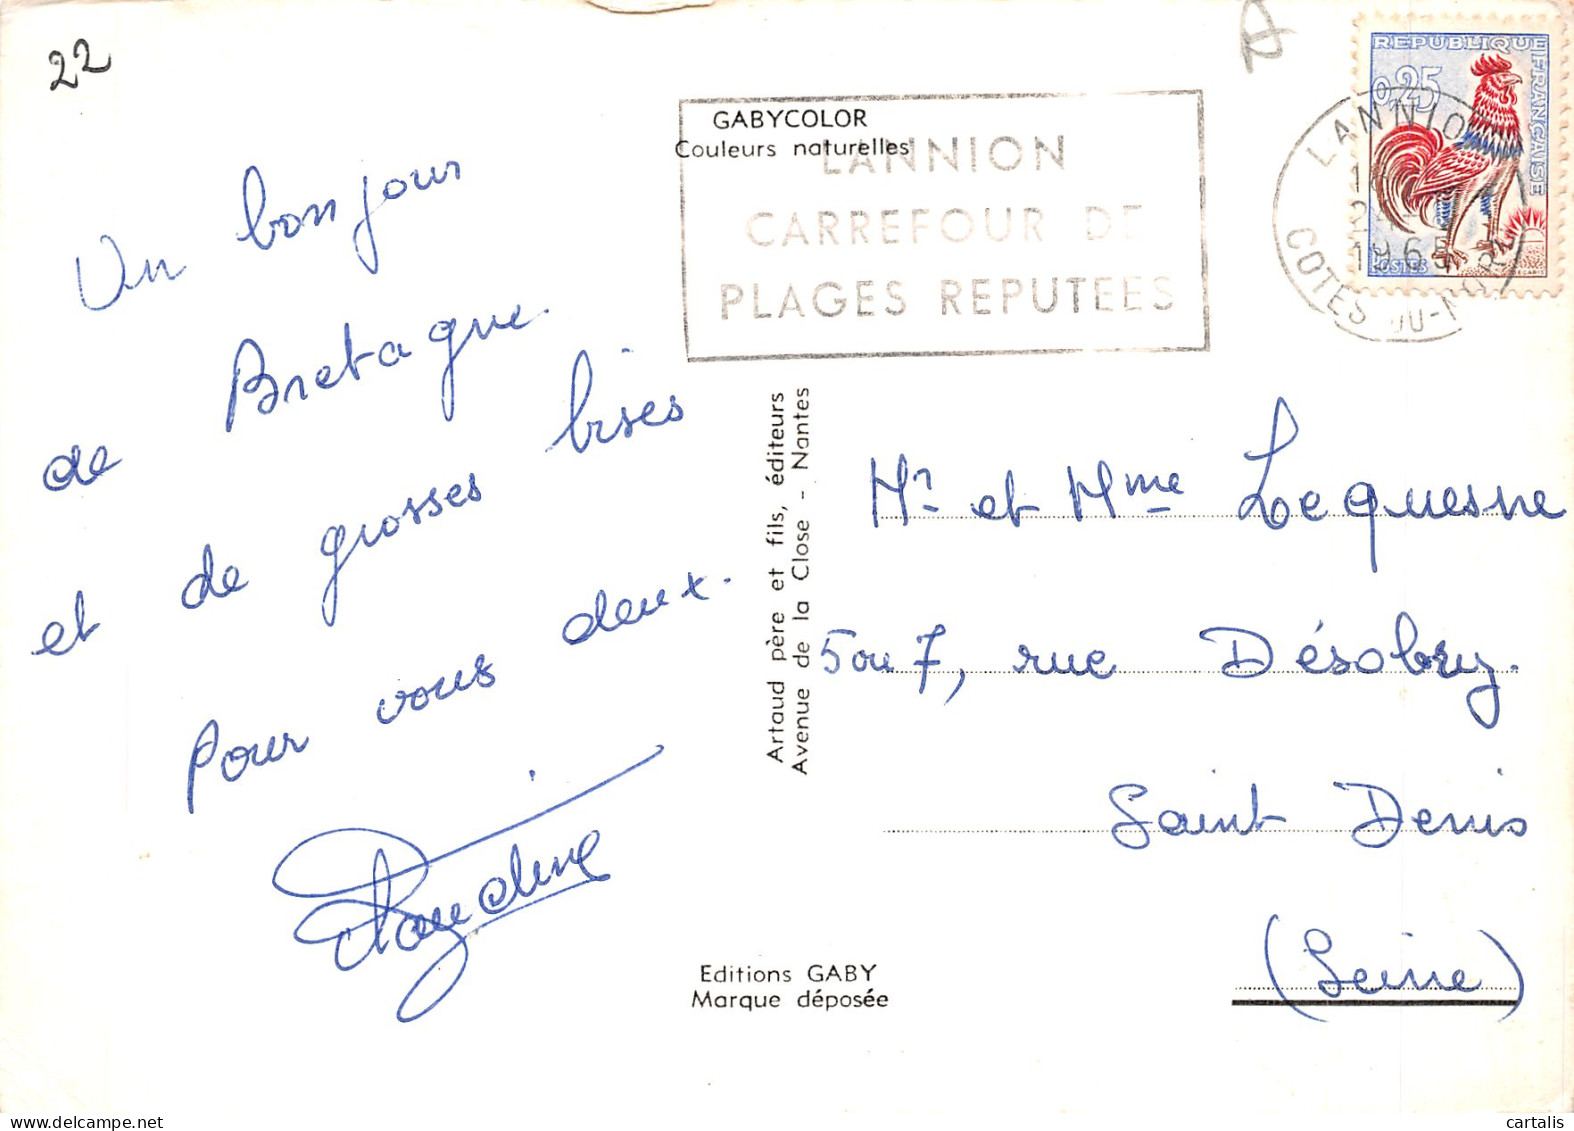 22
Un bonjour
de Bretagne.
et de grosses bises
pour vous deux.
Claudine
GABYCOLOR
Couleurs naturelles
LANNION
CARREFOUR DE
PLAGES REPUTEES
LANNION
1965
COTES-DU-NORD
REPUBLIQUE FRANÇAISE
0,25
POSTES
Artaud père et fils, éditeurs
Avenue de la Close - Nantes
Mr et Mme Lequesne
5 ou 7, rue Désobry.
Saint Denis
(Seine)
Editions GABY
Marque déposée
cartalis